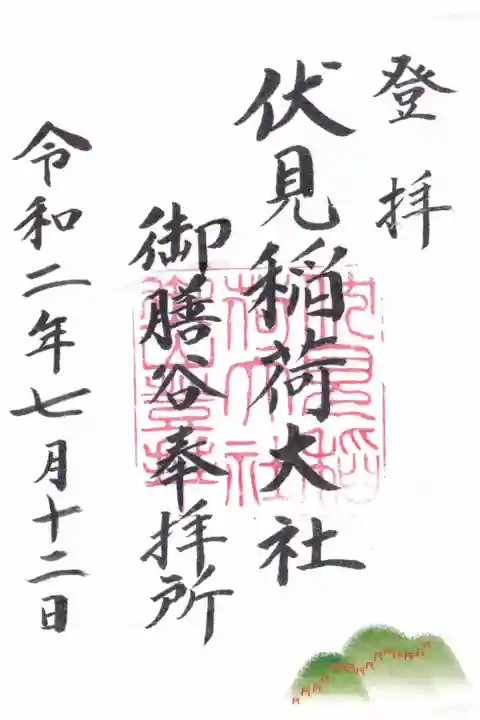 登拝
伏見稲荷大社
御膳谷奉拝所
令和二年七月十二日